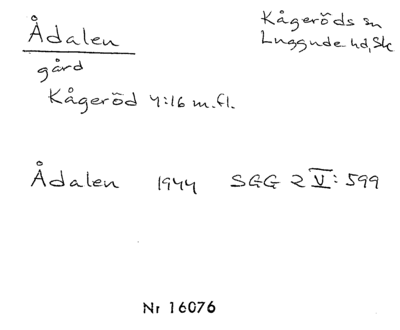 Ådalen
Kågeröds sn
Luggude hd, Sk
gård
Kågeröd 4:16 m.fl.
Ådalen 1944 SGG 2 V: 599
Nr 16076